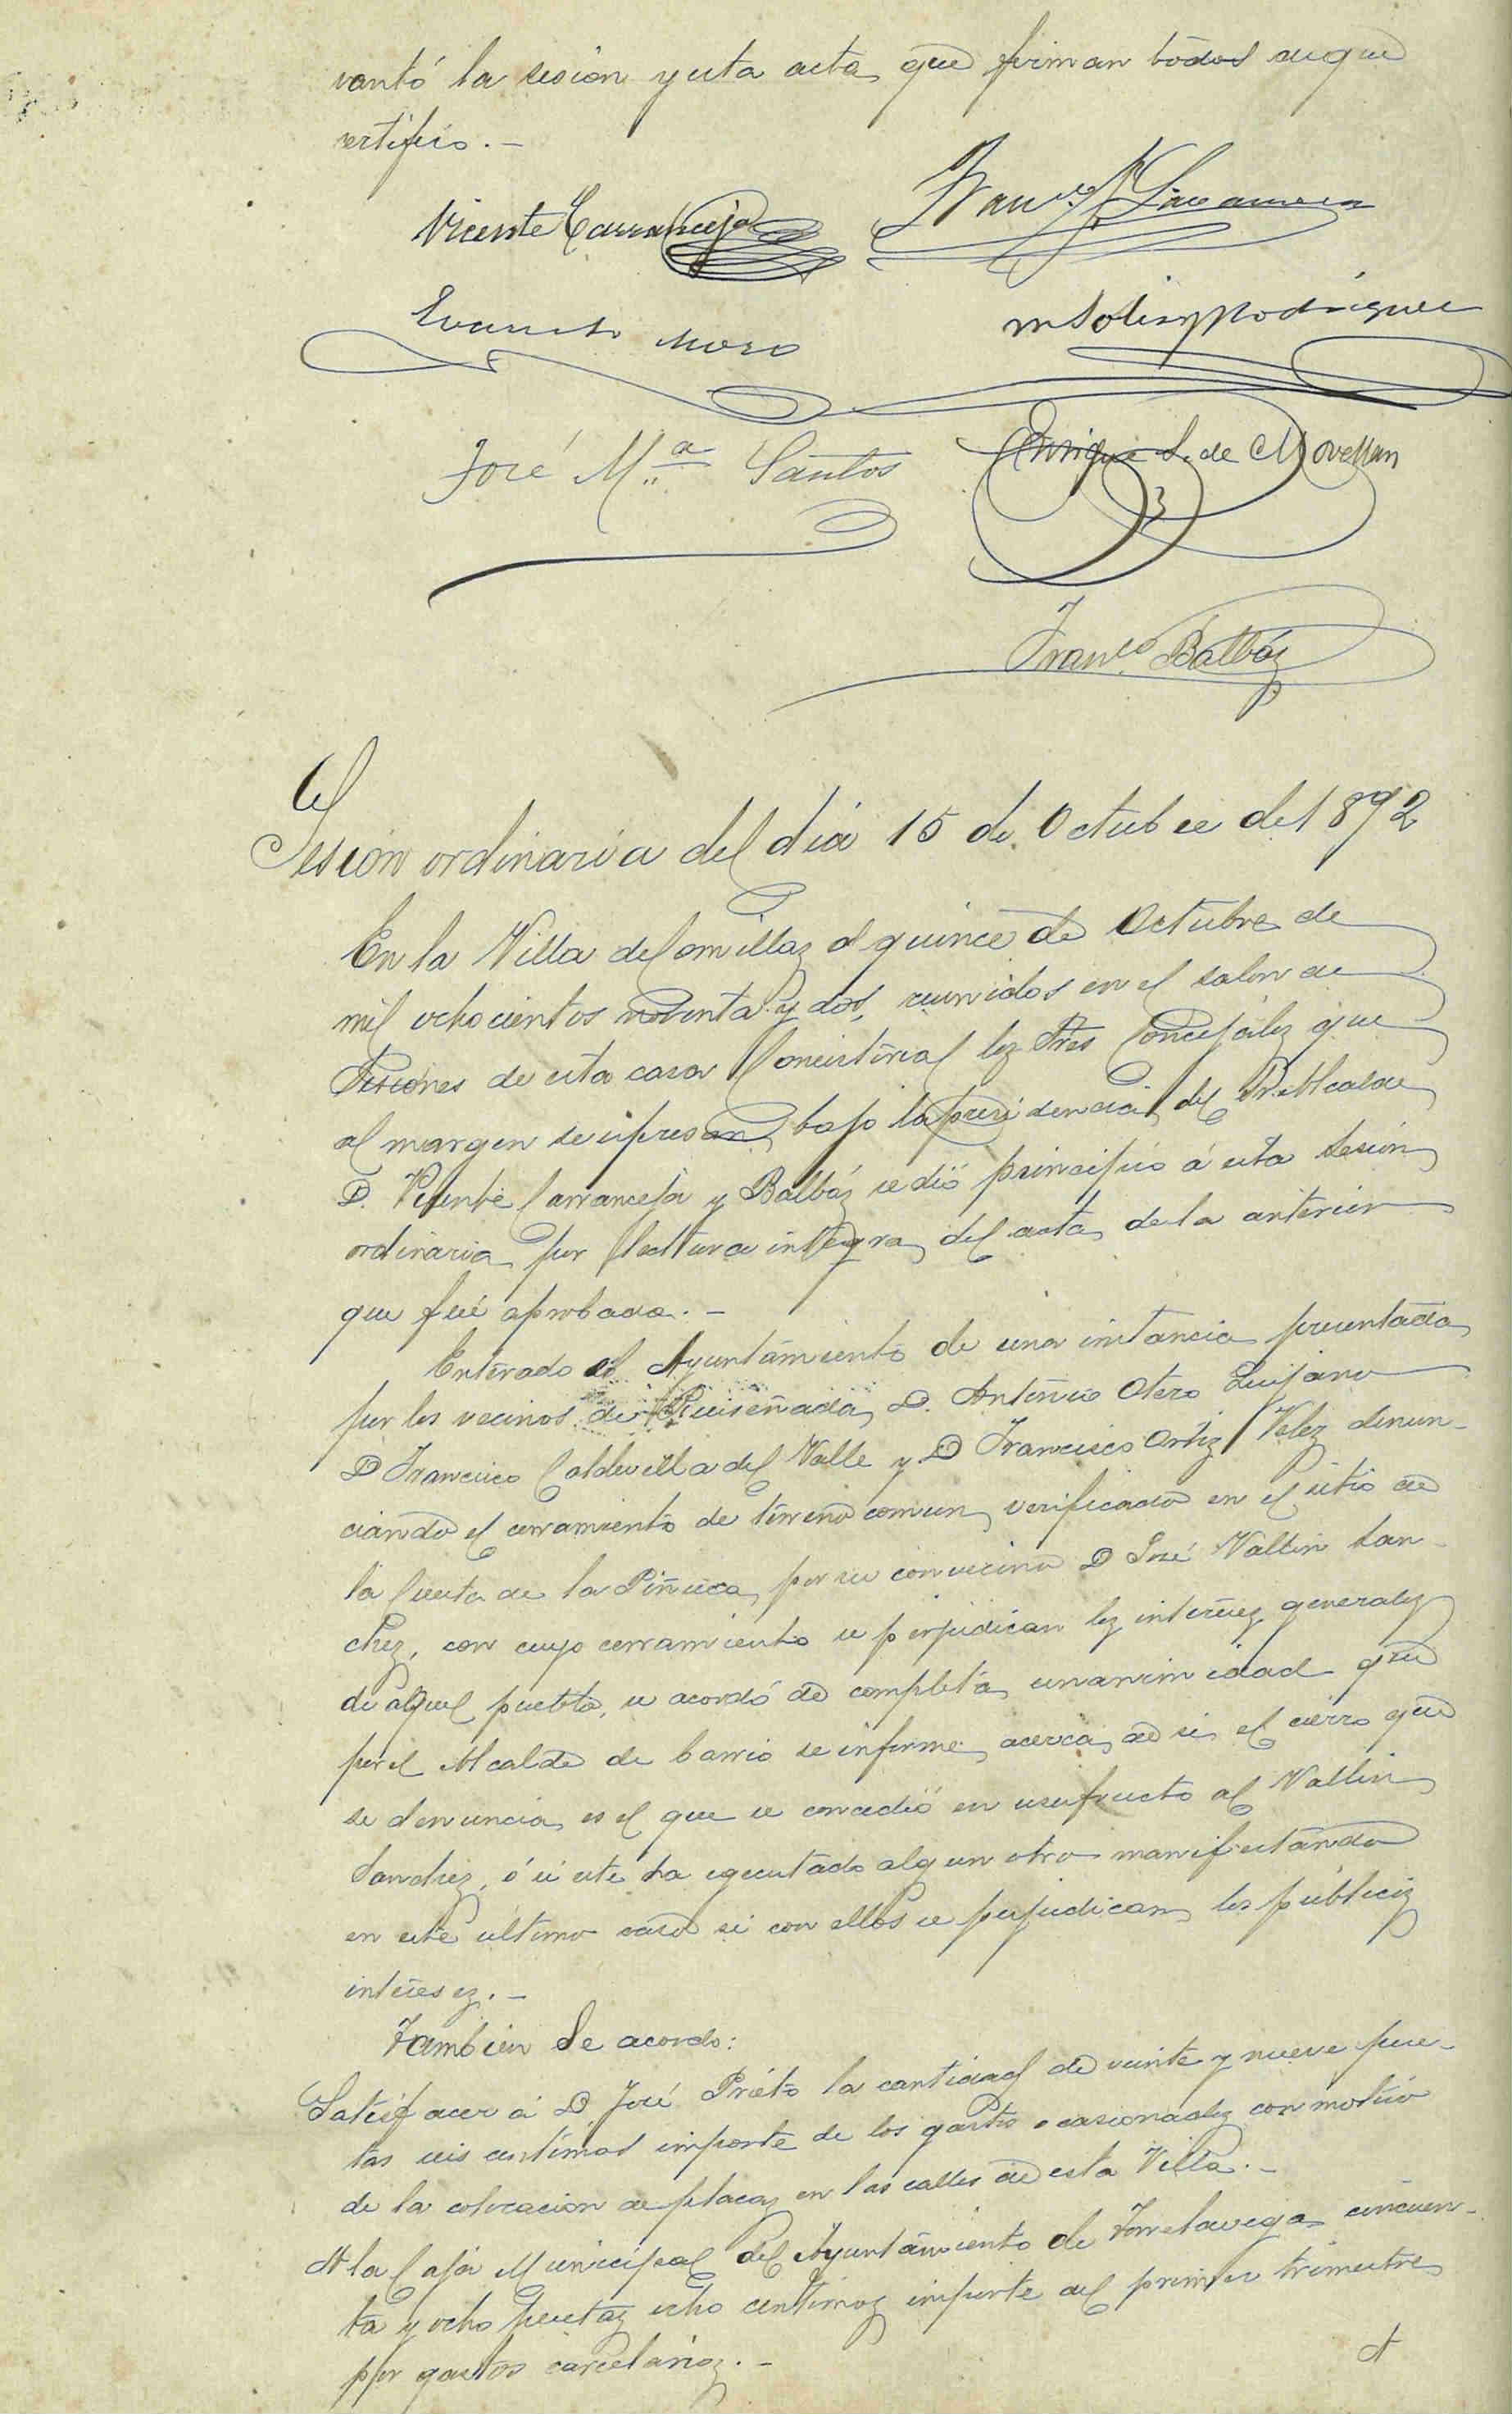 vantó la sesion y esta acta, que firman todos de que
certifico. —
Vicente Carranceja
Franco
Evaristo Moro
M Solis y Rodriguez
José M.ª Santos
Enrique S. de Movellan
Franco. Balbás
Sesion ordinaria del dia 15 de Octubre de 1892
En la Villa de Comillas á quince de Octubre de
mil ochocientos noventa y dos, reunidos en el salon de
Sesiones de esta casa Consistorial los Sres Concejales que
al margen se espresan, bajo la presidencia, del Sr. Alcalde
D. Vicente Carranceja y Balbás se dió principio á esta sesion
ordinaria por lectura integra, del acta, de la anterior
que fué aprobada. —
Enterado el Ayuntamiento de una instancia presentada
por los vecinos de Ruiseñada, D. Antonio Otero Quijano
D Francisco Caldevilla del Valle y D Francisco Ortiz Velez denun-
ciando el cerramiento de terreno comun, verificado en el sitio de
la Cuesta de la Piñuca, por su convecino D José Vallin San-
chez, con cuyo cerramiento se perjudican los intereses generales
de aquel pueblo, se acordó de completa unanimidad que
por el Alcalde de barrio se informe, acerca, de si el cierro que
se denuncia, es el que se concedió en usufructo al Vallin
Sanchez, ó si este ha egecutado algun otro manifestando
en este último caso si con ellos se perjudican, los públicos
intereses. —
Tambien Se acordo:
Satisfacer á D. José Prieto la cantidad de veinte y nueve pese-
tas seis centimos importe de los gastos ocasionados con motivo
de la colocacion de placas en las calles de esta Villa. —
A la Caja Municipal del Ayuntamiento de Torrelavega cincuen-
ta y ocho pesetas ocho centimos importe del primer trimestre
por gastos carcelarios. —
A